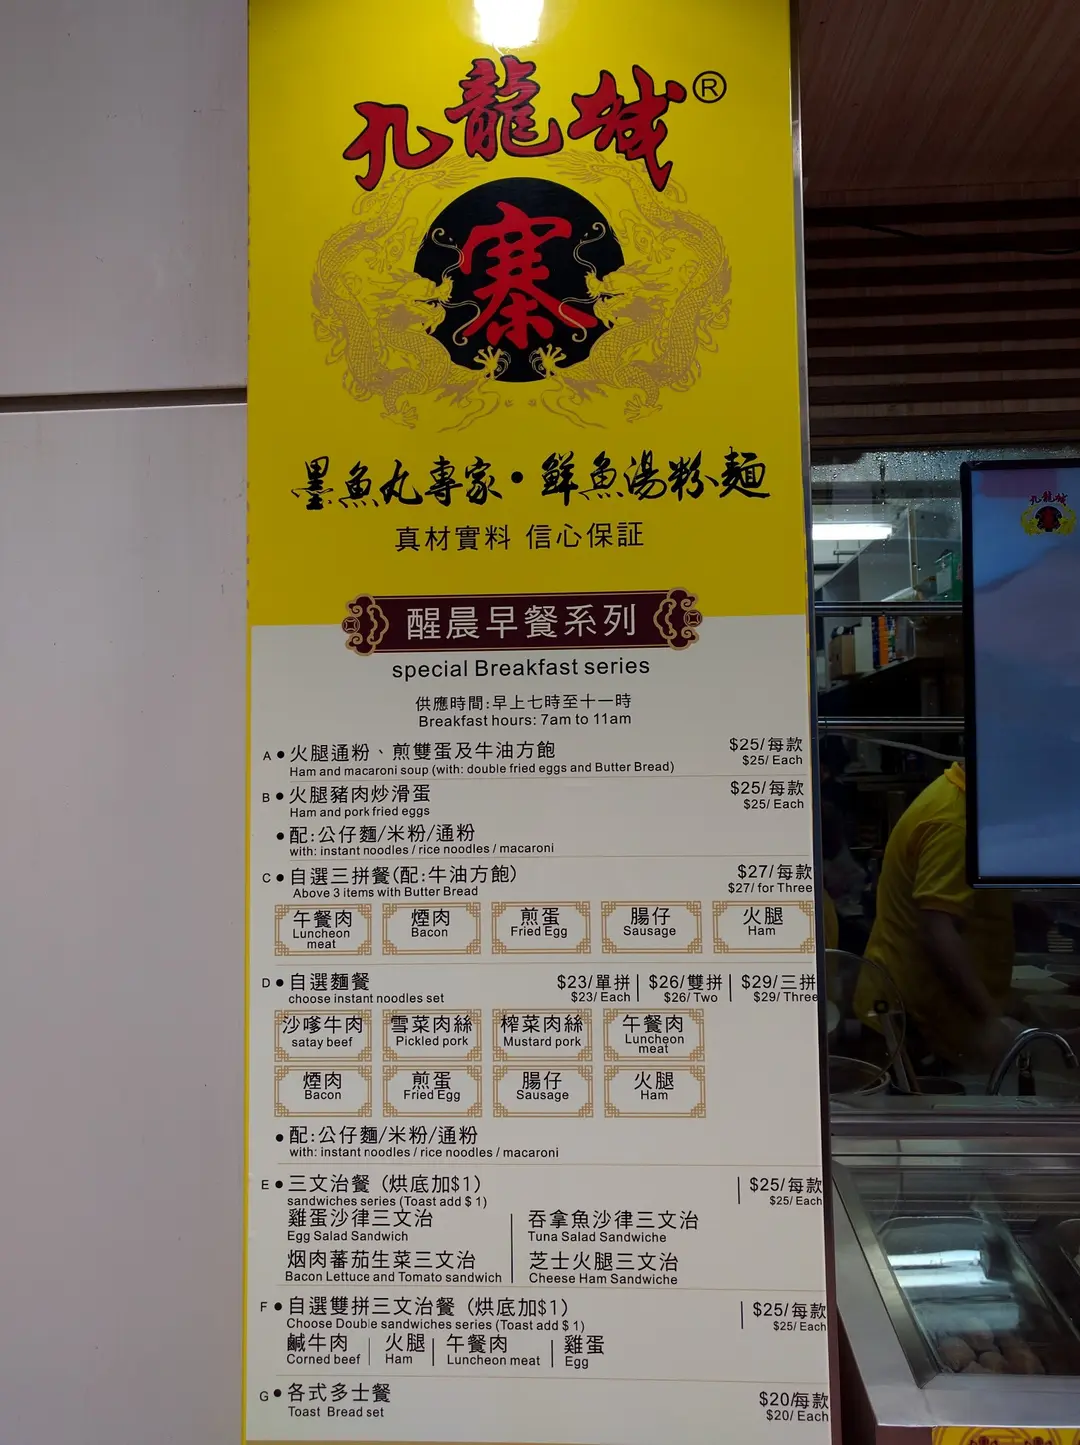 九龍城®
寨
墨魚丸專家•鮮魚湯粉麵
真材實料 信心保証
醒晨早餐系列
special Breakfast series
供應時間:早上七時至十一時
Breakfast hours: 7am to 11am
A • 火腿通粉、煎雙蛋及牛油方飽 $25/每款
Ham and macaroni soup (with: double fried eggs and Butter Bread) $25/ Each
B • 火腿豬肉炒滑蛋 $25/每款
Ham and pork fried eggs $25/ Each
• 配:公仔麵/米粉/通粉
with: instant noodles / rice noodles / macaroni
C • 自選三拼餐(配:牛油方飽) $27/每款
Above 3 items with Butter Bread $27/ for Three
午餐肉 煙肉 煎蛋 腸仔 火腿
Luncheon meat Bacon Fried Egg Sausage Ham
D • 自選麵餐 $23/單拼 | $26/雙拼 | $29/三拼
choose instant noodles set $23/ Each | $26/ Two | $29/ Three
沙嗲牛肉 雪菜肉絲 榨菜肉絲 午餐肉
satay beef Pickled pork Mustard pork Luncheon meat
煙肉 煎蛋 腸仔 火腿
Bacon Fried Egg Sausage Ham
• 配:公仔麵/米粉/通粉
with: instant noodles / rice noodles / macaroni
E • 三文治餐 (烘底加$1) | $25/每款
sandwiches series (Toast add $ 1) $25/ Each
雞蛋沙律三文治 | 吞拿魚沙律三文治
Egg Salad Sandwich | Tuna Salad Sandwiche
烟肉蕃茄生菜三文治 | 芝士火腿三文治
Bacon Lettuce and Tomato sandwich | Cheese Ham Sandwiche
F • 自選雙拼三文治餐 (烘底加$1) | $25/每款
Choose Double sandwiches series (Toast add $ 1) $25/ Each
鹹牛肉 | 火腿 | 午餐肉 | 雞蛋
Corned beef | Ham | Luncheon meat | Egg
G • 各式多士餐 $20/每款
Toast Bread set $20/ Each
九龍城
寨